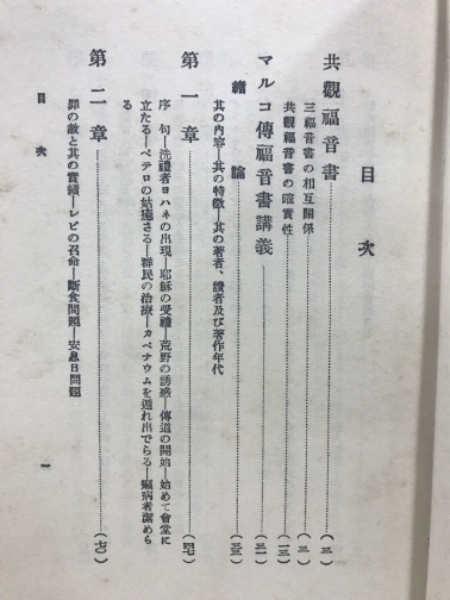 目次
共觀福音書……(三)
三福音書の相互關係……(三)
共觀福音書の確實性……(一三)
マルコ傳福音書講義……(三一)
緖論……(三三)
其の内容―其の特徵―其の著者、讀者及び著作年代
第一章……(四七)
序句―洗禮者ヨハネの出現―耶穌の受禮―荒野の誘惑―傳道の開始―始めて會堂に
立たる―ペテロの姑癒さる―群民の治療―カペナウムを遁れ出でらる―癩病者潔めら
る
第二章……(七〇)
罪の赦と其の實績―レビの召命―斷食問題―安息日問題
目次
一